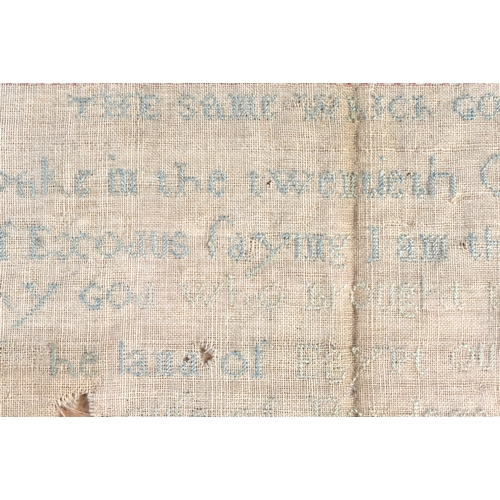 THE SAME WHICH GO
pake in the twentieth C
f Exodus saying I am th
hy God who brought
he land of Egypt Ou